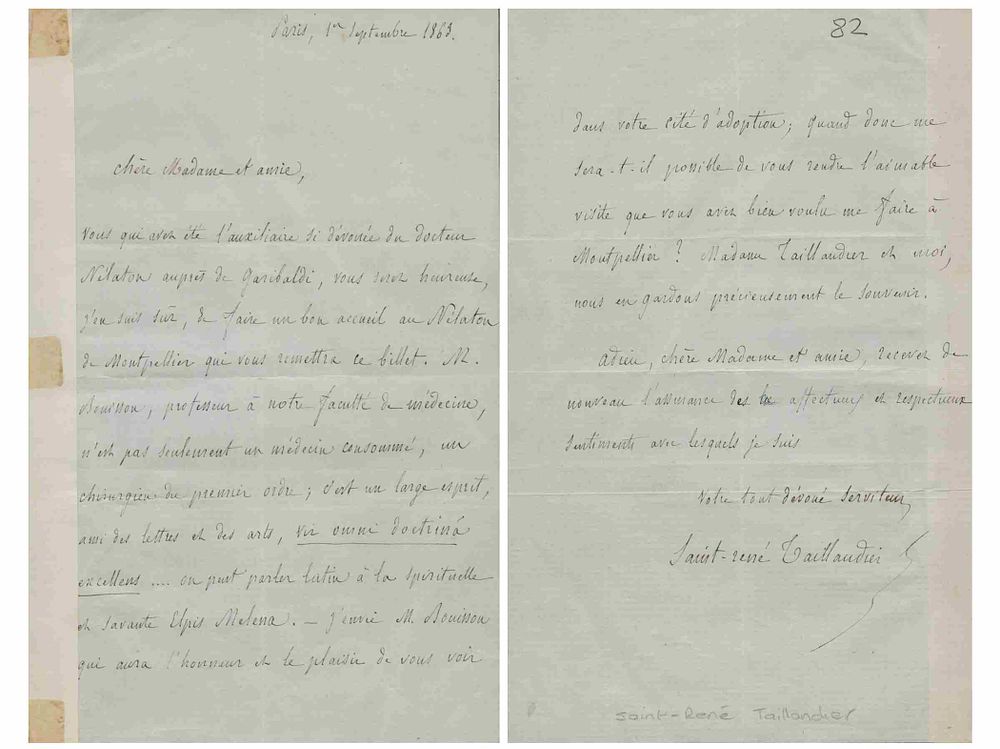 Paris, 1er Septembre 1863.
chère Madame et amie,
Vous qui avez été l'auxiliaire si dévouée du docteur
Nélaton auprès de Garibaldi, vous serez heureuse,
j'en suis sûr, de faire un bon accueil au Nélaton
de Montpellier qui vous remettra ce billet. M.
Bouisson, professeur à notre faculté de médecine,
n'est pas seulement un médecin consommé, un
chirurgien du premier ordre; c'est un large esprit,
ami des lettres et des arts, vir omni doctrinâ
excellens .... on peut parler latin à la spirituelle
et savante Elpis Melena. — J'envie M. Bouisson
qui aura l'honneur et le plaisir de vous voir
82
dans votre cité d'adoption; quand donc me
sera-t-il possible de vous rendre l'aimable
visite que vous avez bien voulu me faire à
Montpellier? Madame Taillandier et moi,
nous en gardons précieusement le souvenir.
Adieu, chère Madame et amie, recevez de
nouveau l'assurance des affectueux et respectueux
sentiments avec lesquels je suis
Votre tout dévoué serviteur
Saint-René Taillandier
Saint-René Taillandier